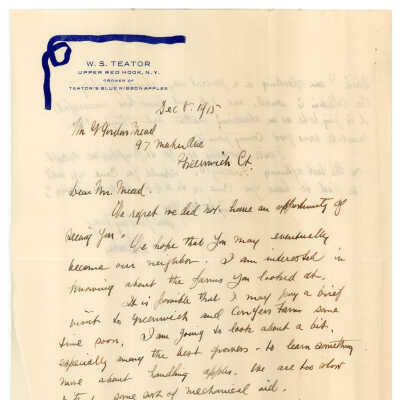 W. S. TEATOR
UPPER RED HOOK, N.Y.
GROWER OF
TEATOR'S BLUE RIBBON APPLES
Dec 8. 1915
Mr W Gordon Mead
97 Maher Ave
Greenwich Ct.
Dear Mr. Mead.
We regret we did not have an opportunity of
seeing you. We hope that you may eventually
become our neighbor. I am interested in
knowing about the farms you looked at.
It is possible that I may pay a brief
visit to Greenwich and Conyers Farm some
time soon, I am going to look about a bit,
especially among the best growers - to learn something
more about handling apples. We are too slow
some sort of mechanical aid.